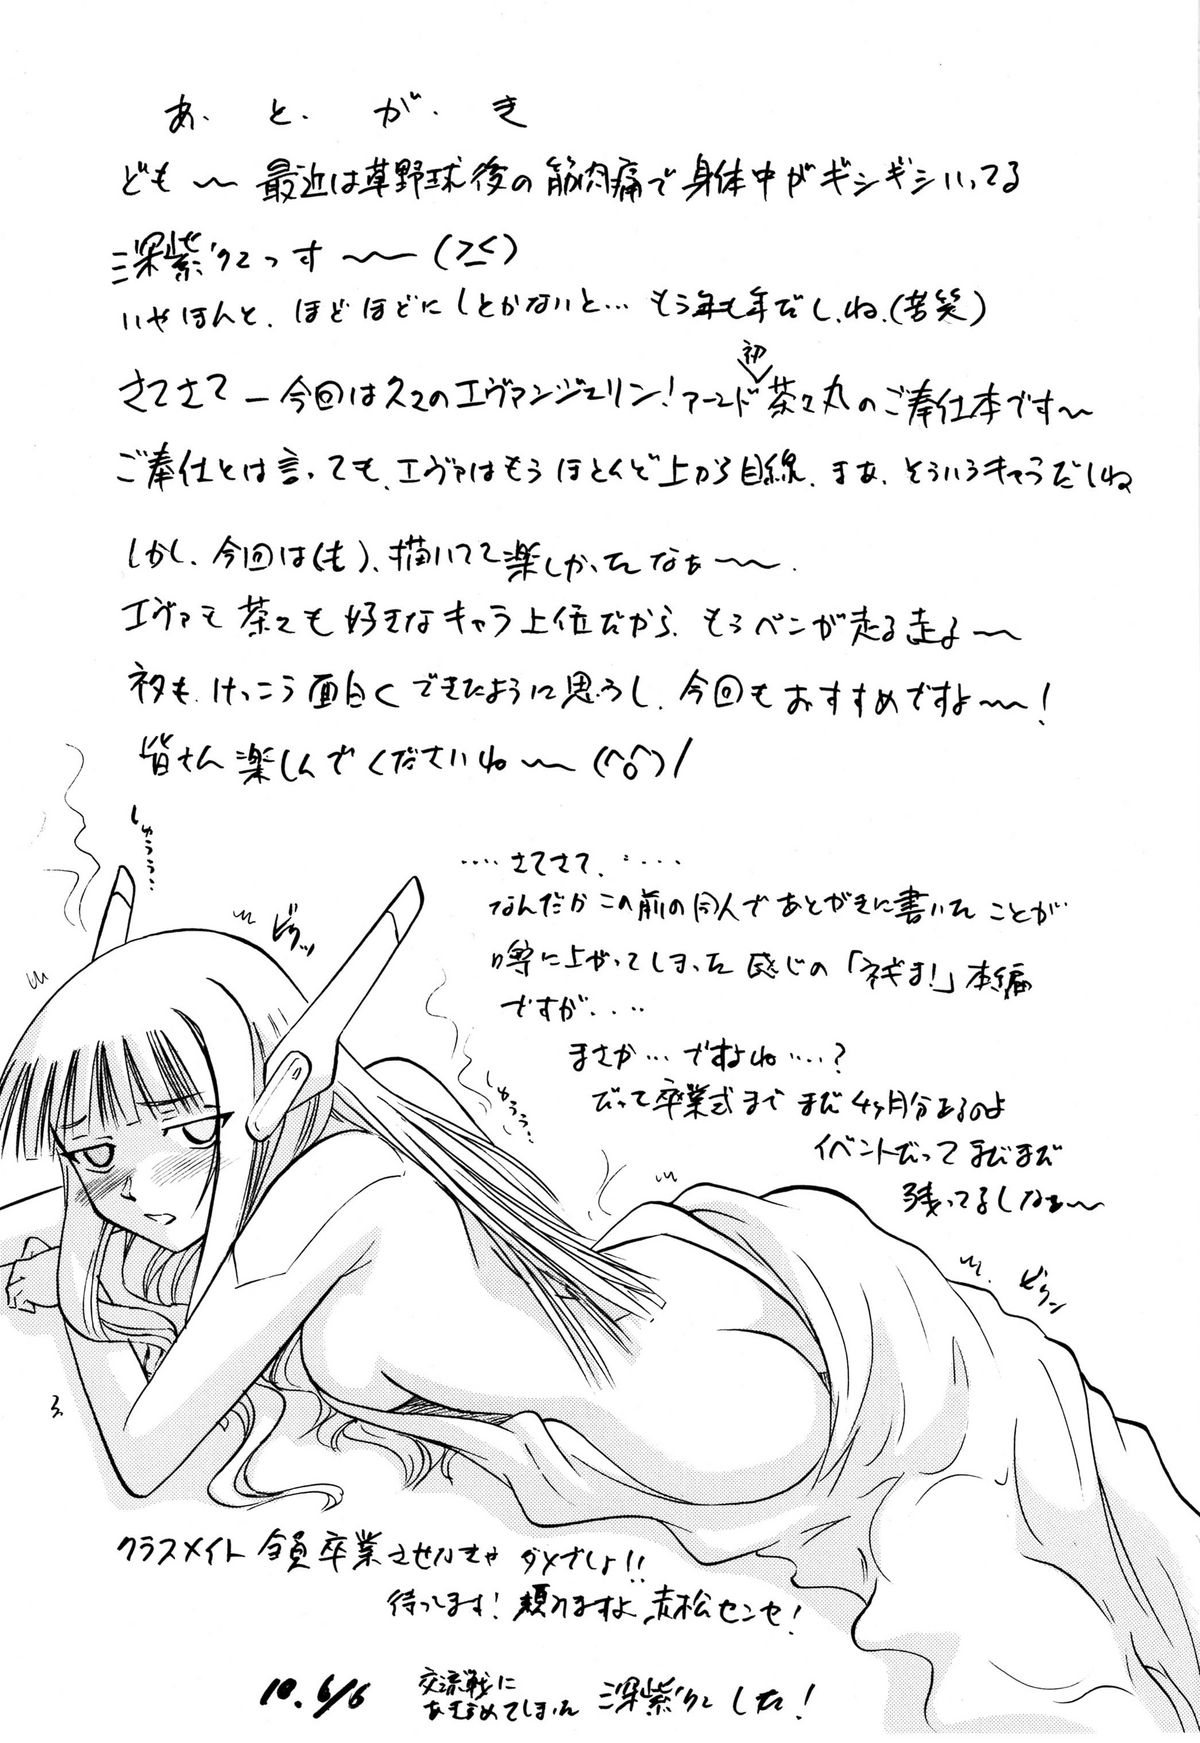 あ・と・が・き
ども〜最近は草野球後の筋肉痛で身体中がギシギシいってる
深紫'クてっす〜〜(>_<)
いやほんと、ほどほどにしとかないと…もう年も年だし、ね、(苦笑)
さてさてー今回は久々のエヴァンジェリン!アーンド初茶々丸のご奉仕本です〜
ご奉仕とは言っても、エヴァはもうほとんど上から目線、まあ、そういうキャラだしね
しかし、今回は(も)、描いてて楽しかったなぁ〜〜、
エヴァも茶々も好きなキャラ上位だから、もうペンが走る走る〜
ネタも、けっこう面白くできたように思うし、今回もおすすめですよ〜〜!
皆さん楽しんでくださいね〜〜(^o^)/
しゅううう…
‥‥さてさて、‥‥
なんだかこの前の同人であとがきに書いたことが
噂に上がってしまった感じの「ネギま!」本編
ですが、‥‥
まさか…ですよね‥‥?
だって卒業式までまだ4ヶ月分あるのよ
イベントだってまだまだ
残ってるしなぁ〜
ビクッ
クラスメイト全員卒業させなきゃダメでしょ!!
待ってます!頼みますよ、赤松センセ!
10.6/6
交流戦に
あせめてしまった
深紫'クでした!